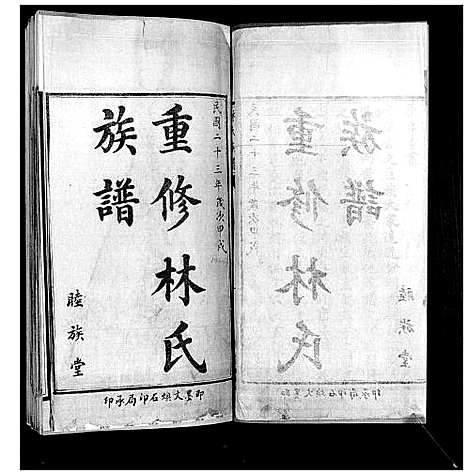 民國二十三年歲次甲戌
重修林氏
族譜
睦族堂
即墨文煥石印局承印